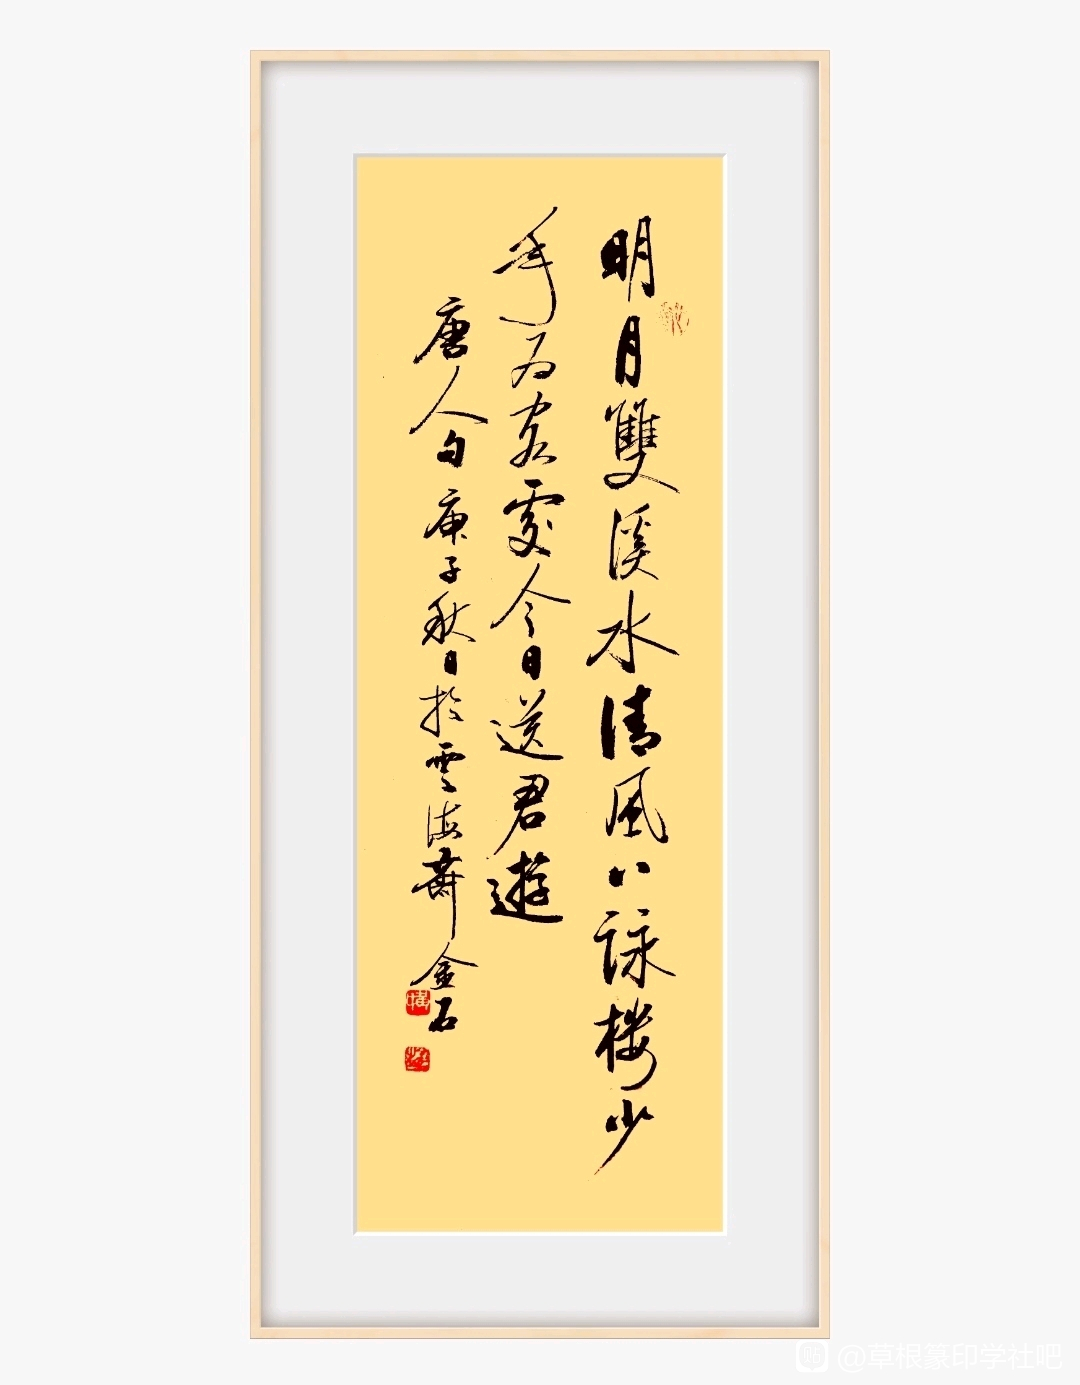 明月雙溪水清風八詠樓少
年為客處今日送君遊
唐人句庚子秋日於雲海齋金石
@草根篆印学社吧